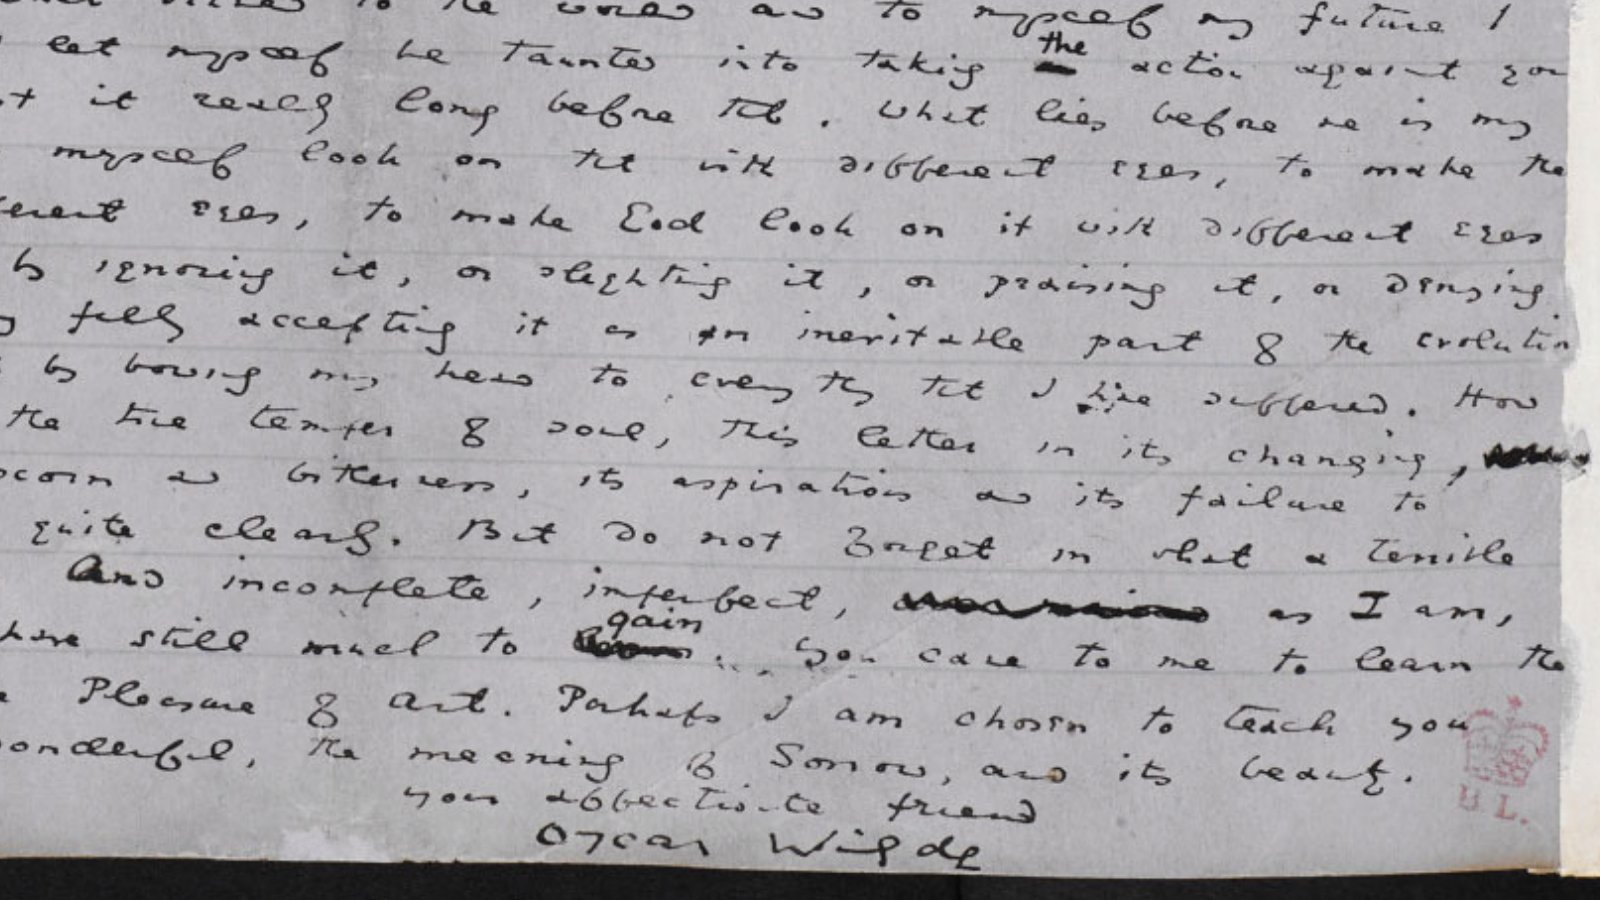 to the world and to myself my future I
let myself be taunted into taking the action against you
it really long before that. What lies before me is my
myself look on that with different eyes, to make the
different eyes, to make God look on it with different eyes
by ignoring it, or slighting it, or praising it, or denying
fully accepting it as an inevitable part of the evolution
by bowing my head to everything that I have suffered. How
the true temper of soul, this letter in its changing,
scorn and bitterness, its aspirations and its failure to
quite clearly. But do not forget in what a terrible
And incomplete, imperfect, as I am,
have still much to gain. You came to me to learn the
Pleasure of Art. Perhaps I am chosen to teach you
wonderful, the meaning of Sorrow, and its beauty.
your affectionate friend
Oscar Wilde
B L.